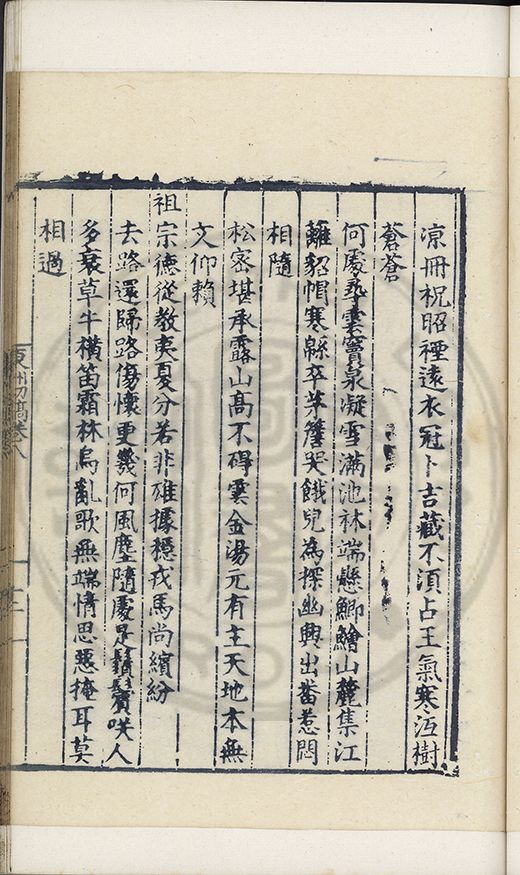 凉冊祝昭禋遠衣冠卜吉藏不湏占王氣寒沍樹
蒼蒼
何處尋雲竇泉凝雪滿池林端懸鯽鱠山麓集江
籬貂帽寒縣卒茅簷哭餓兒為探幽興出畨惹悶
相隨
松密堪承露山高不碍雲金湯元有主天地本無
文仰賴
祖宗德從教夷夏分若非雄據穩戎馬尚繽紛
去路還歸路傷懷更幾何風塵隨處是鬚鬢咲人
多衰草牛橫笛霜林烏亂歌無端情思惡掩耳莫
相過
東洲初稿卷八